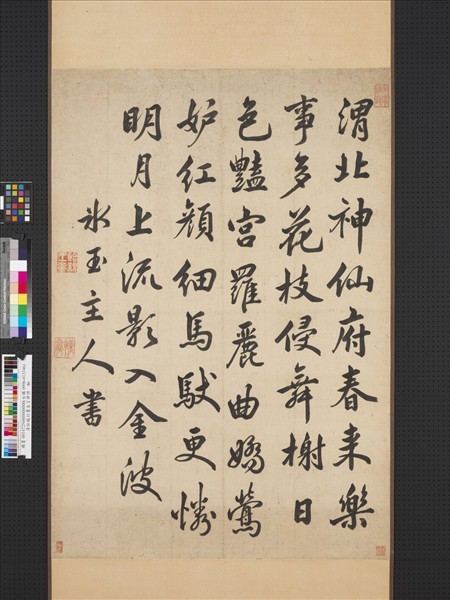 渭北神仙府春来樂
事多花枝侵舞榭日
色豔宮羅麗曲嬌鶯
妒紅顏細馬馱更憐
明月上流影入金波
氷玉主人書